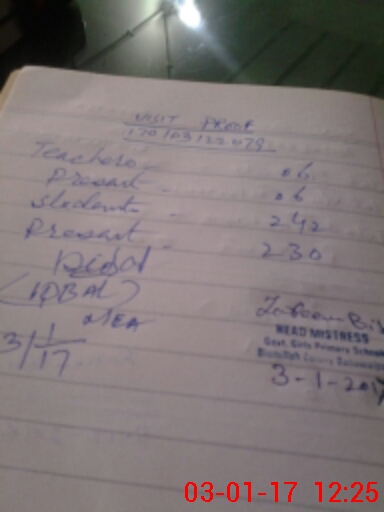 VISIT PROOF
Teachers 06
Present 06
Students 242
Present 230
(IQBAL)
MEA
3/1/17
HEAD MISTRESS
Govt. Girls Primary School
3-1-2017
03-01-17 12:25